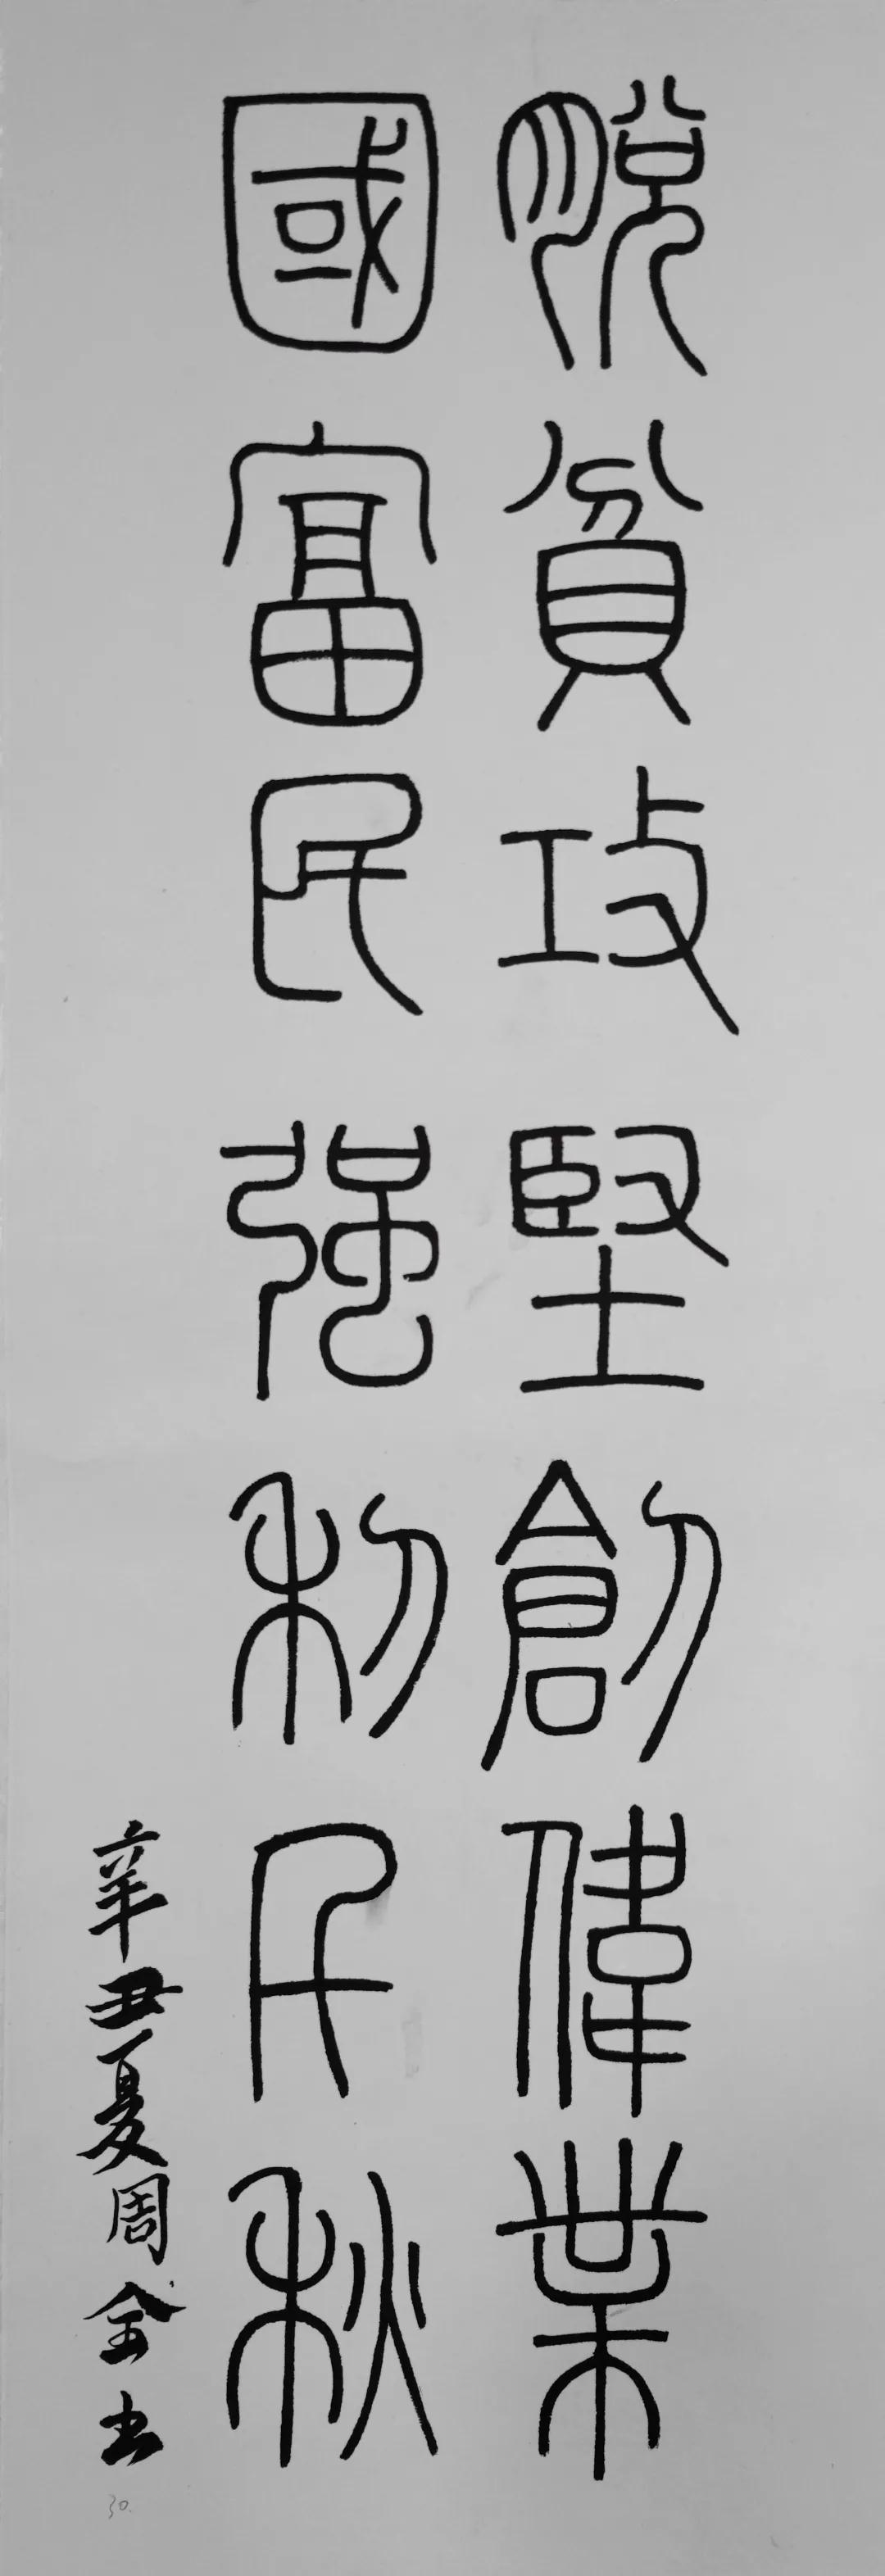 脫貧攻堅創偉業
國富民强利千秋
辛丑夏周全书
30.